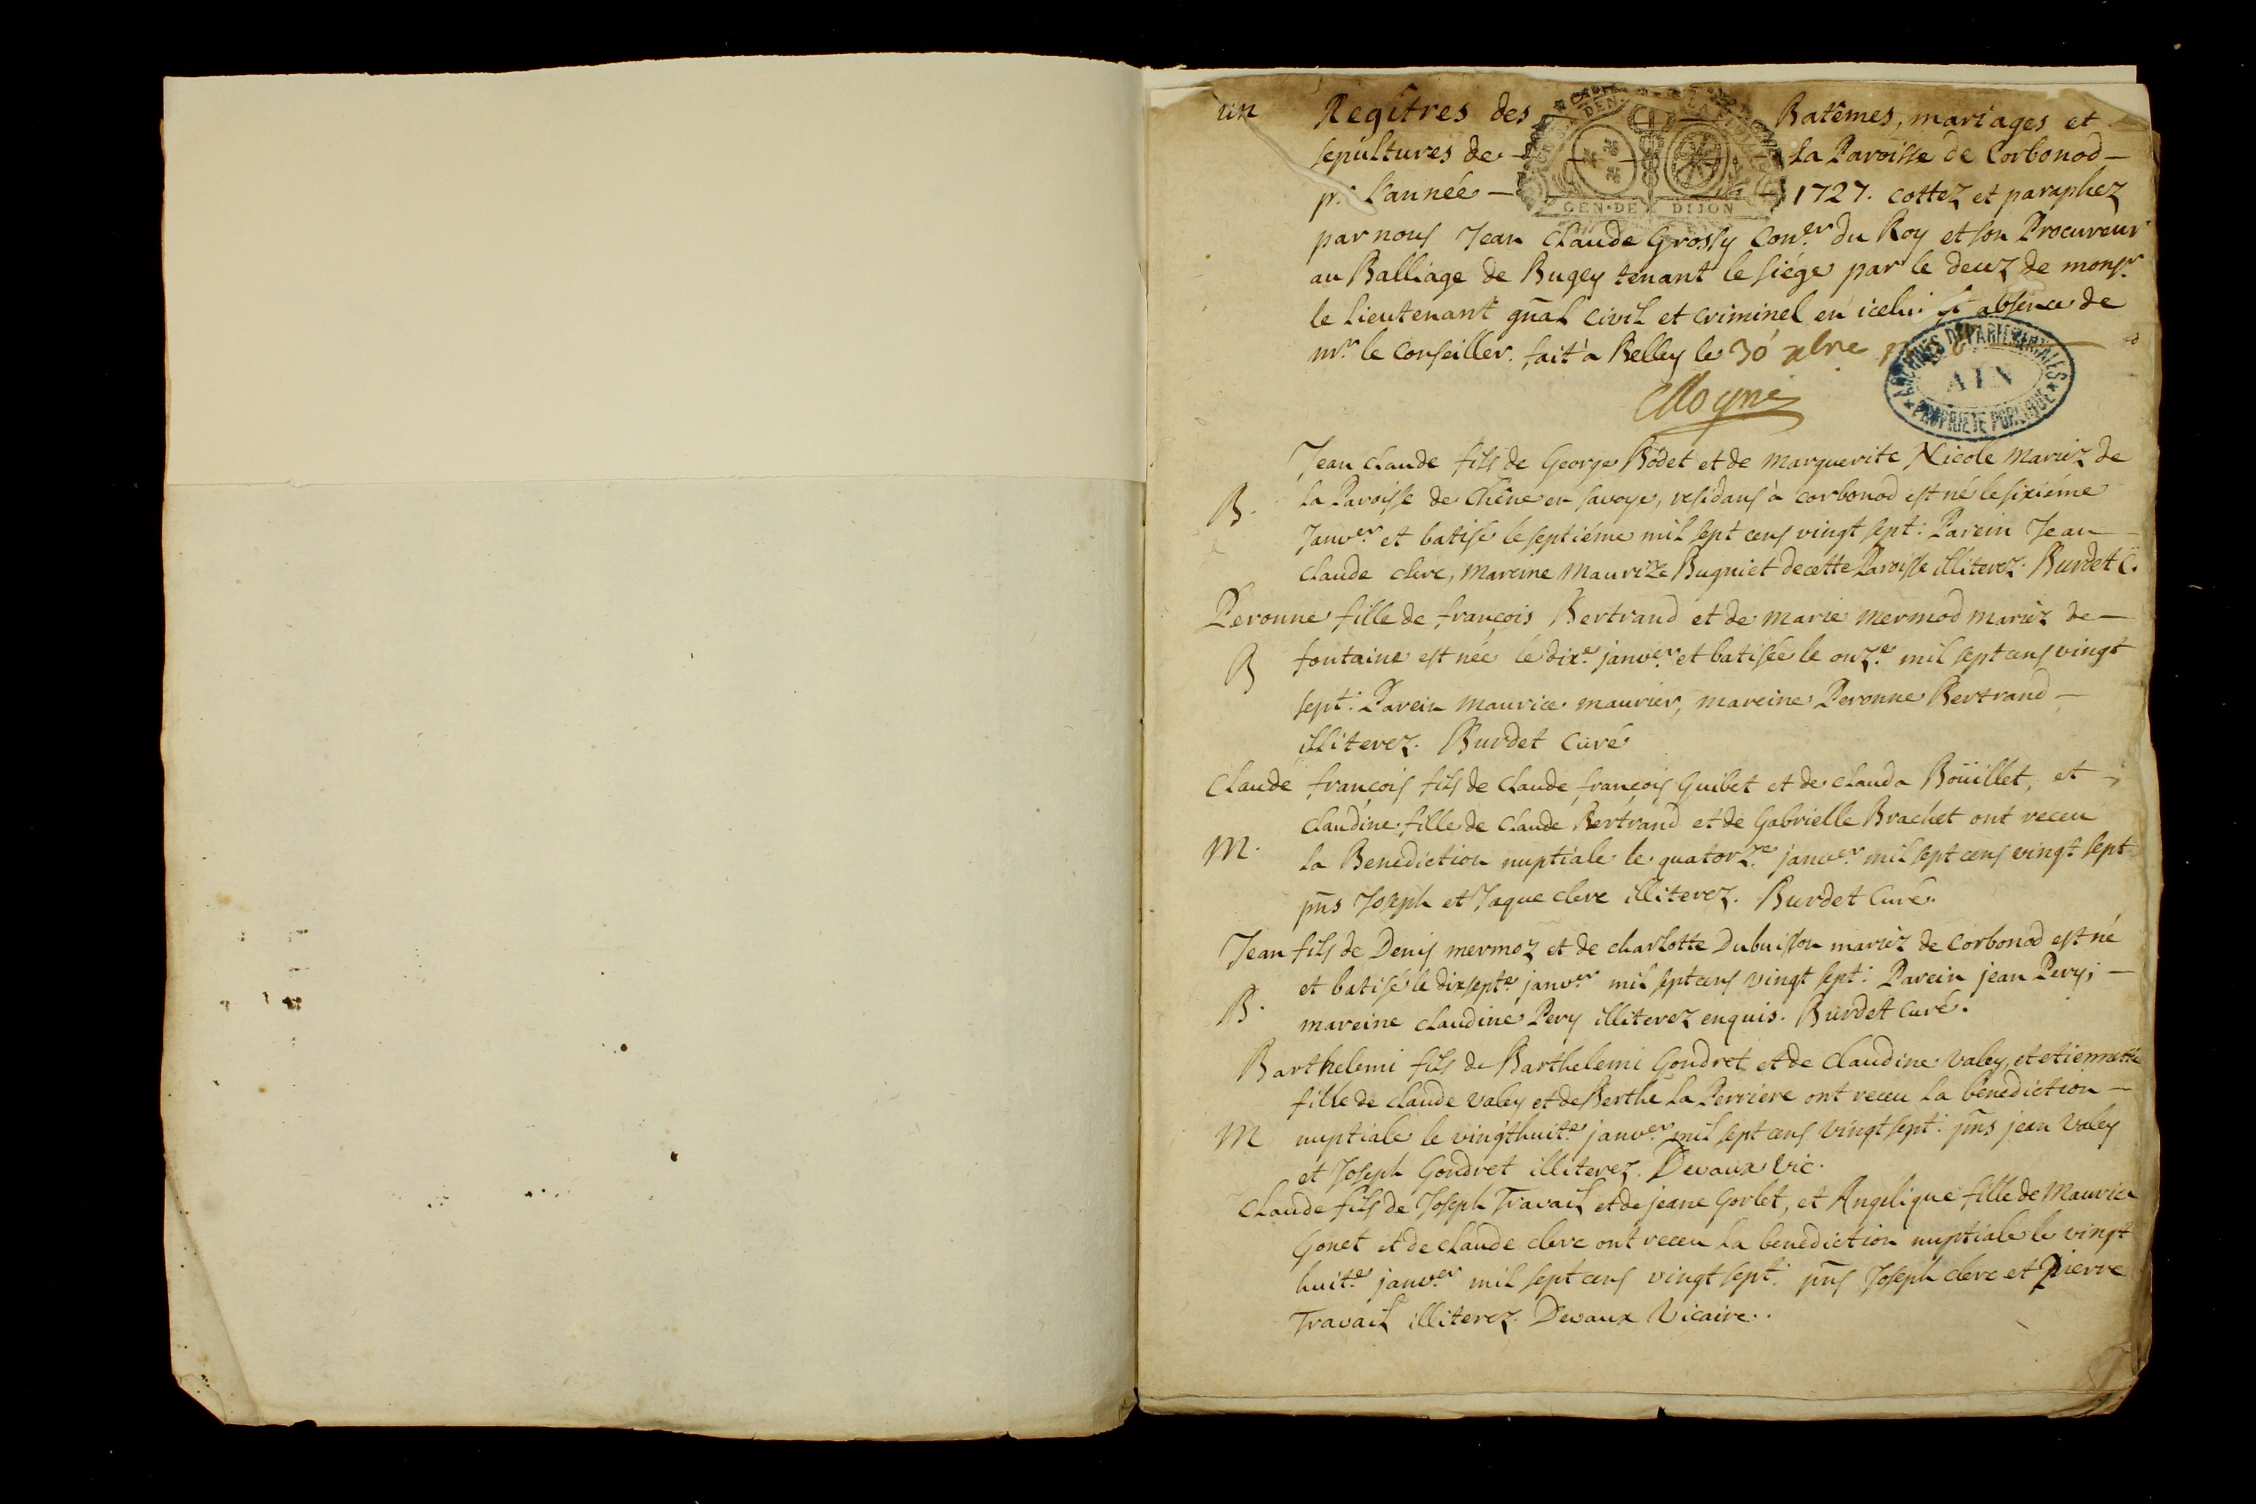 un Regîtres des Batêmes, mariages et
sepultures de la Paroisse de Corbonod
pr. l'année 1727. cottez et paraphez
par nous Jean Claude Grossy Coner. du Roy et son Procureur
au Balliage de Bugey tenant le siége par le decez de monsr.
le Lieutenant gnal Civil et criminel en icelui et absence de
mr. le Conseiller. fait à Belley le 30 xbre
GEN·DE DIJON
ARCHIVES DÉPARTEMENTALES
AIN
PROPRIÉTÉ PUBLIQUE
Jean claude fils de George Bodet et de Marguerite Nicole Mariez de
la Paroisse de Chêne en Savoye, residans à corbonod est né le sixiéme
B. Janver. et batisé le septiéme mil sept cens vingt sept. Parein Jean
claude clerc, Mareine Maurize Bugniet de cette Paroisse illiterez. Burdet C.
Peronne fille de françois Bertrand et de Marie Mermod mariez de
B fontaine est née le dixe. janver. et batisée le onze. mil sept cens vingt
sept. Parein Maurice maurier, mareine Peronne Bertrand
illiterez. Burdet Curé
Claude françois fils de Claude françois Guibet et de clauda Boüillet, et
claudine fille de Claude Bertrand et de Gabrielle Brachet ont receu
M. la Benediction nuptiale le quatorze. janver. mil sept cens vingt sept
pns Joseph et Jaque clerc illiterez. Burdet Curé.
Jean fils de Denis mermoz et de charlotte Dubuisson mariez de Corbonod est né
et batisé le dixsepte. janver. mil sept cens vingt sept. Parein jean Pery,
B. mareine claudine Pery illiterez enquis. Burdet Curé.
Barthelemi fils de Barthelemi Goudret et de Claudine Valey, et etiennette
fille de claude Valey et de Berthe La Perriere ont receu la benediction
M nuptiale le vingthuite. janver. mil sept cens vingt sept. pns jean Valey
et Joseph Goudret illiterez. Devaux Vic.
Claude fils de Joseph Travail et de jeane Gorlet, et Angelique fille de Maurice
Gonet et de claude clerc ont receu la benediction nuptiale le vingt
huite. janver. mil sept cens vingt sept. pns Joseph clerc et Pierre
Travail illiterez. Devaux Vicaire.